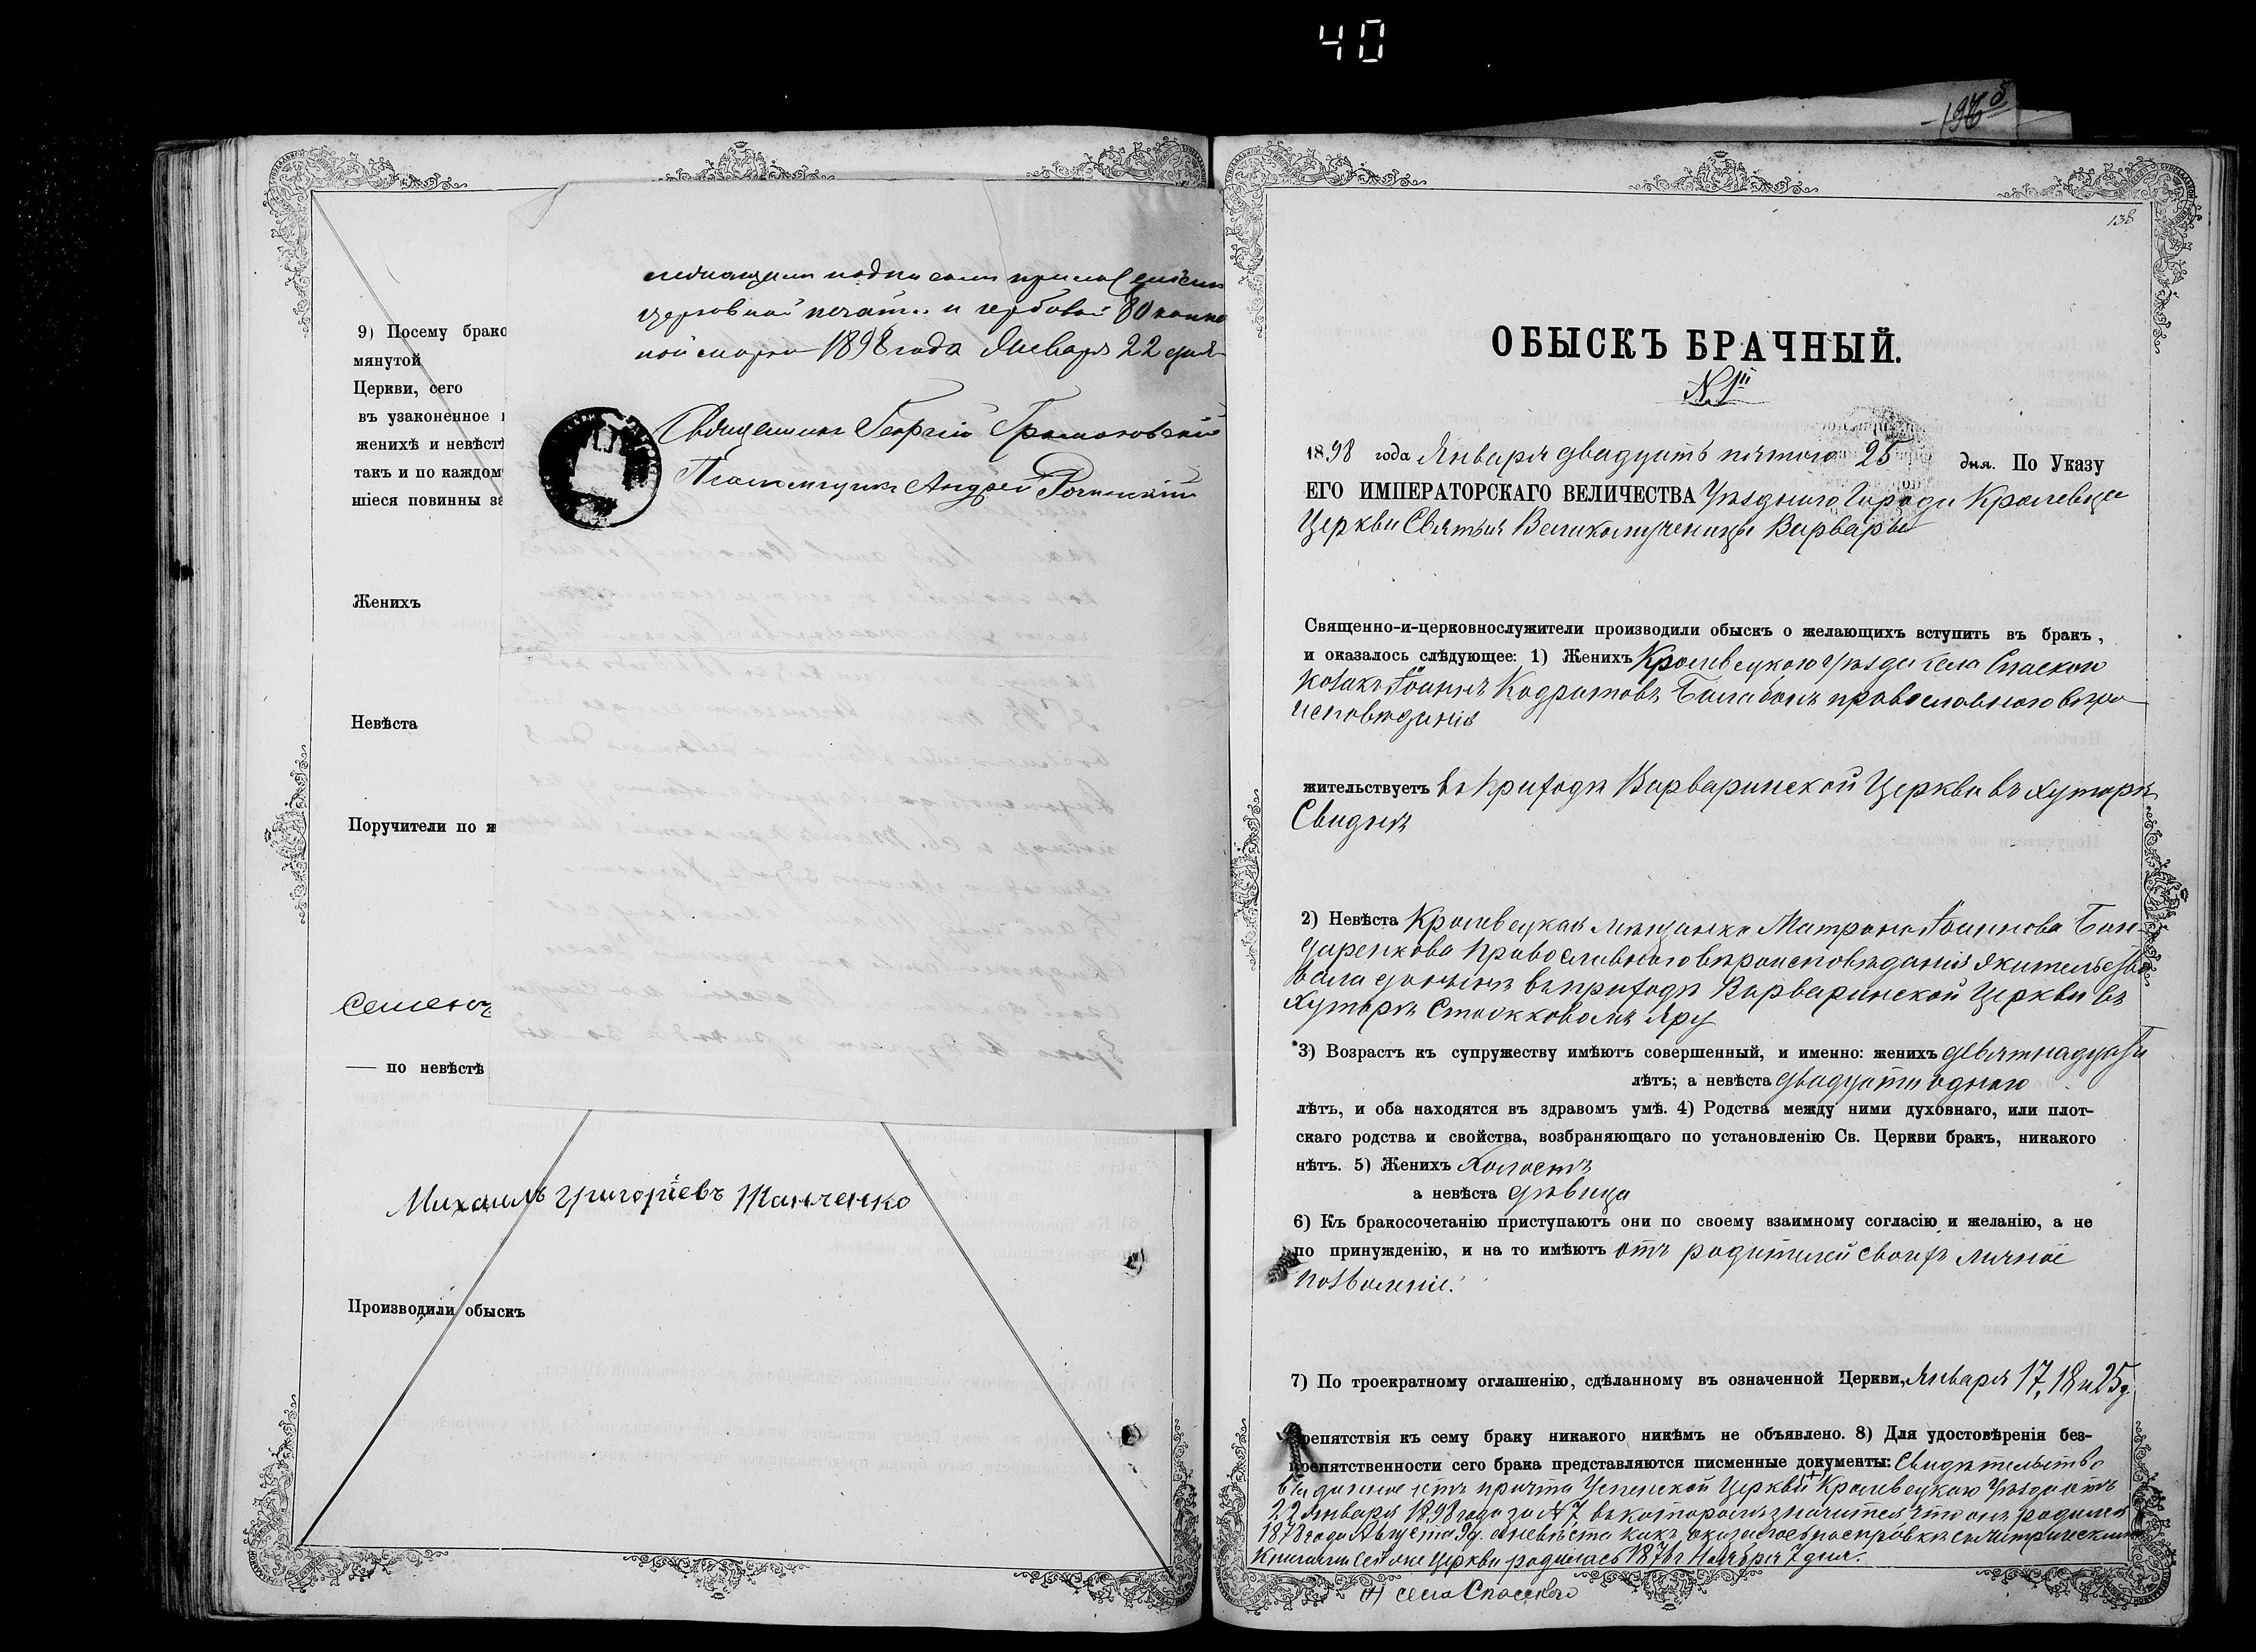 40
198
9) Посему брако
мянутой
Церкви, сего
въ узаконенное
женихѣ и невѣстѣ
такъ и по каждом
шіеся повинны за
Женихъ
Невѣста
Поручители по ж
— по невѣстѣ
Михаилъ Григоріевъ Ткаченко
Производили обыскъ
церковной печати и гербовой 80 копѣе
ной марки 1898 года Января 22 дня
Священникъ Георгій
Псаломщикъ Андрей
138
ОБЫСКЪ БРАЧНЫЙ.
№ 1й
1898 года Января двадцать пятого 25 дня. По Указу
ЕГО ИМПЕРАТОРСКАГО ВЕЛИЧЕСТВА Уѣздного Города Кролевца
Церкви Святыя Великомученицы Варвары
Священно-и-церковнослужители производили обыскъ о желающихъ вступить въ бракъ,
и оказалось слѣдующее: 1) Женихъ Кролевецкого уѣзда села Спаского
козакъ Іоаннъ Кодратовъ Балабонъ православного вѣро
исповѣданія
жительствуетъ въ приходѣ Варваринской Церкви въ Хуторѣ
Свиднѣ
2) Невѣста Кролевецкая мѣщанка Матрона Іоаннова Бон
даренкова Православного вѣроисповѣданія жительство
вала донынѣ въ приходѣ Варваринской Церкви въ
Хуторѣ Яру
3) Возрастъ къ супружеству имѣютъ совершенный, и именно: женихъ девятнадцати
лѣтъ; а невѣста двадцати одного
лѣтъ, и оба находятся въ здравомъ умѣ. 4) Родства между ними духовнаго, или плот-
скаго родства и свойства, возбраняющаго по установленію Св. Церкви бракъ, никакого
нѣтъ. 5) Женихъ Холостъ
а невѣста дѣвица
6) Къ бракосочетанію приступаютъ они по своему взаимному согласію и желанію, а не
по принужденію, и на то имѣютъ отъ родителей своихъ личное
позволеніе.
7) По троекратному оглашенію, сдѣланному въ означенной Церкви, Января 17, 18 и 25 д
препятствія къ сему браку никакого никѣмъ не объявлено. 8) Для удостовѣренія без-
препятственности сего брака представляются писменные документы: Свидѣтельство
выданное отъ причта Успенской Церкви (+) Кролевецкого Уѣзда отъ
22 Января 1898 года за № 7 въ которомъ значится что онъ родился
1878 года Августа 9 д. а невѣста какъ оказалось по справкѣ съ метрическими
Книгами сей же Церкви родилась 1876 г Ноября 7 дня.
(+) села Спаского